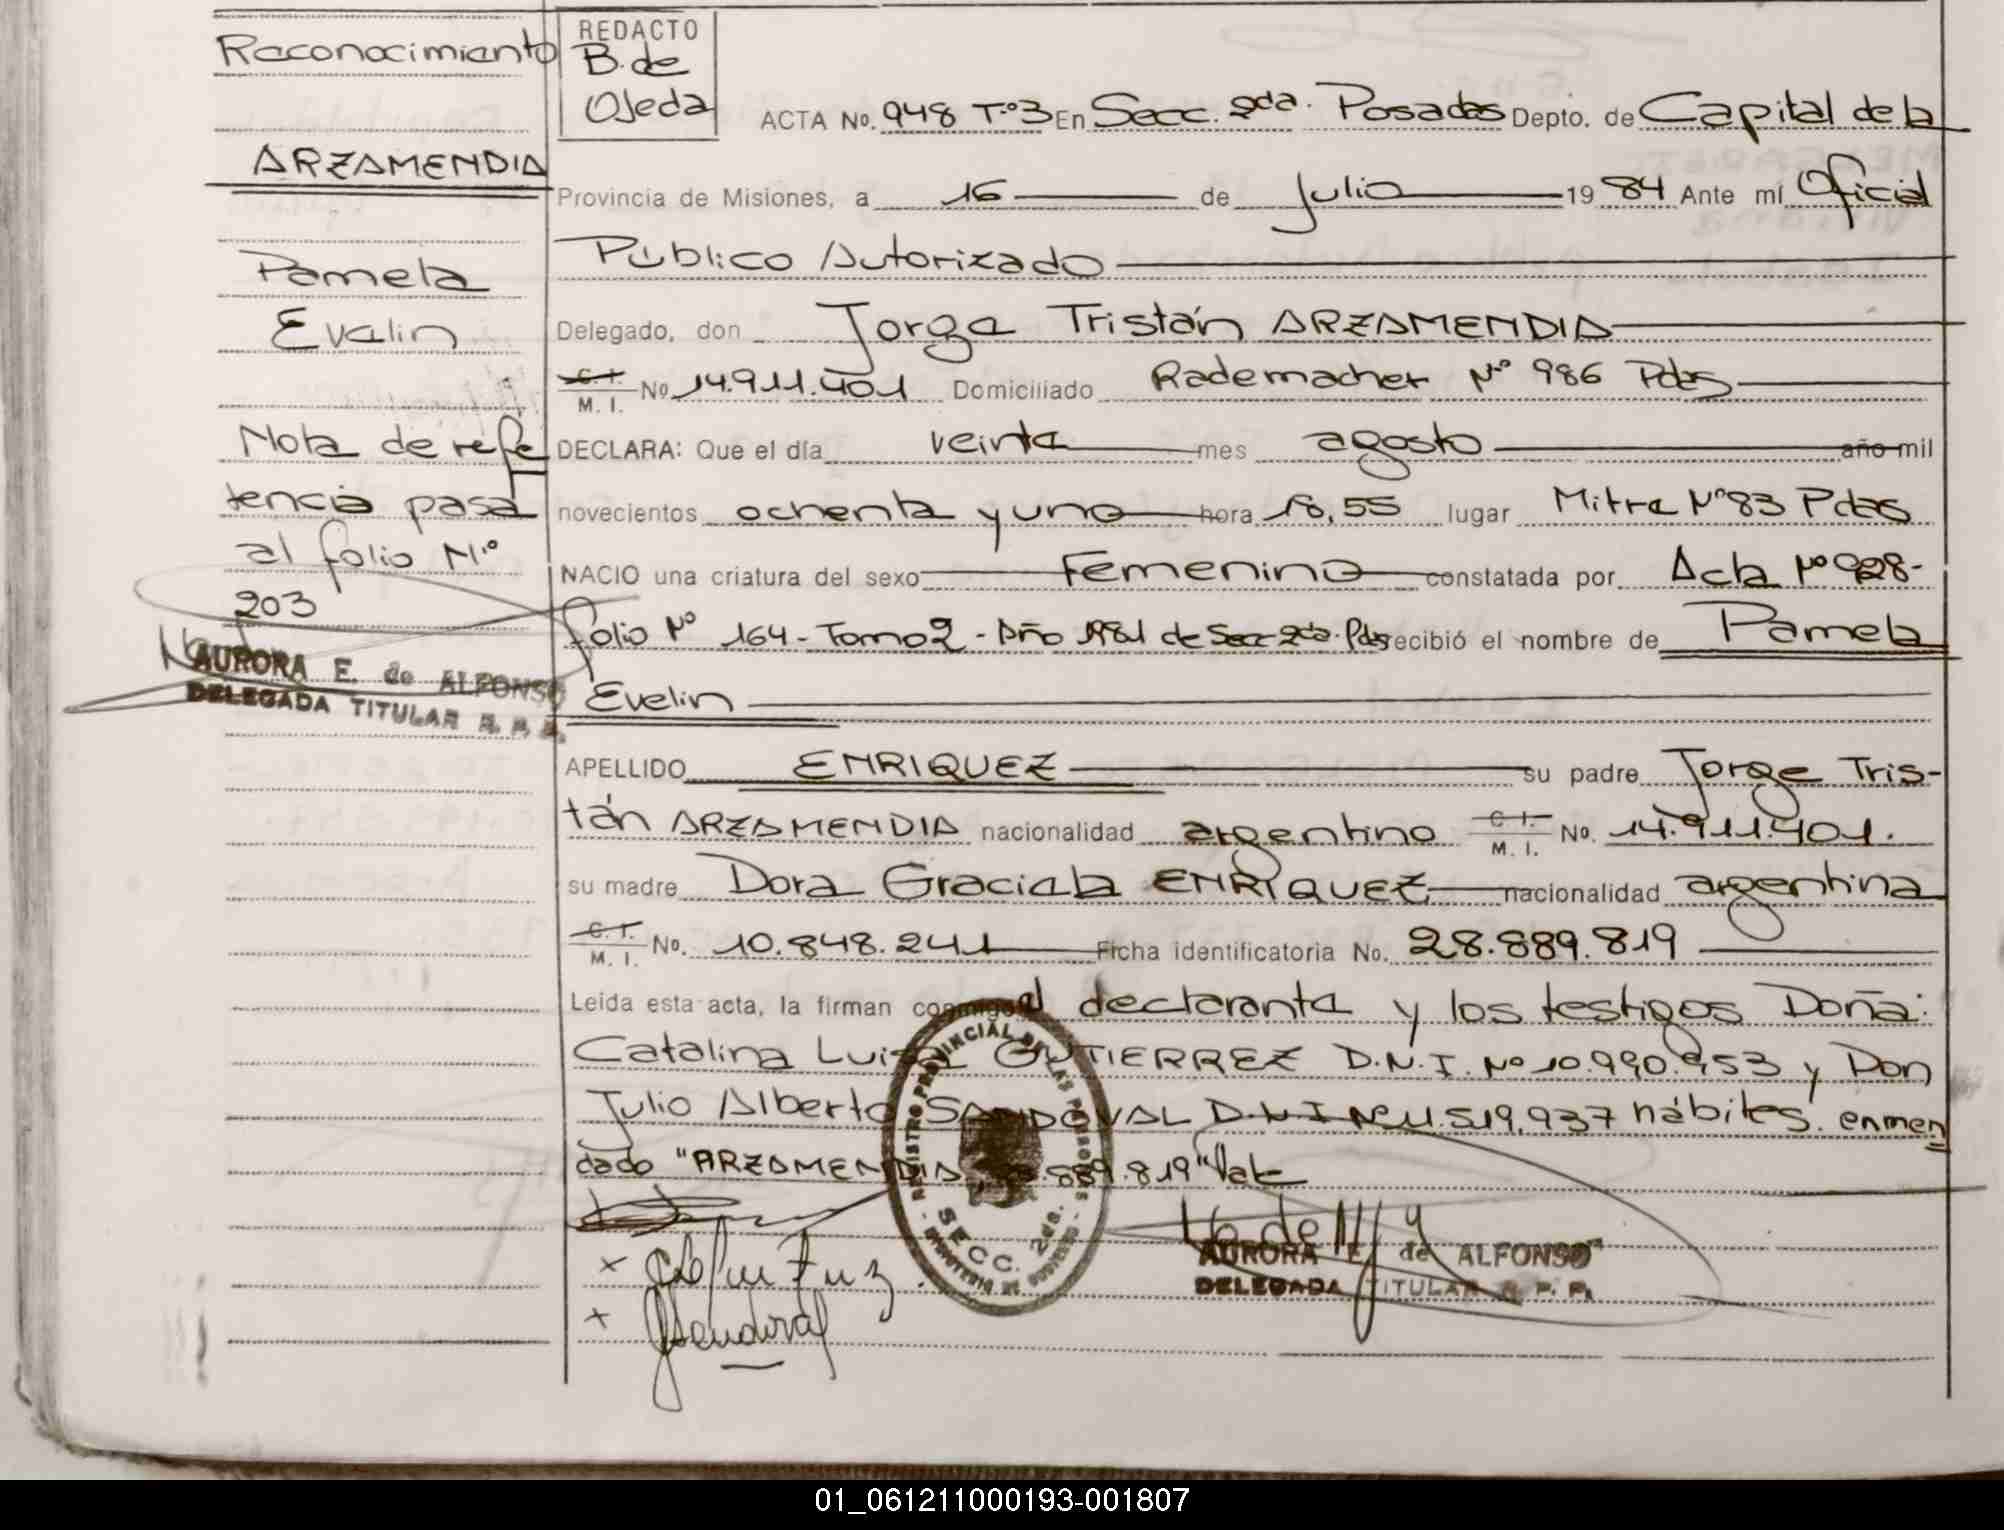 Reconocimiento
ARZAMENDIA
Pamela
Evelin
Nota de refe
rencia pasa
al folio Nº
203
AURORA E. de ALFONSO
DELEGADA TITULAR R. P. P.
REDACTO
B. de
Ojeda
ACTA No. 948 T.º3 En Secc. 2da. Posadas Depto. de Capital de la
Provincia de Misiones, a 16 de Julio 1984 Ante mí Oficial
Público Autorizado
Delegado, don Jorge Tristán ARZAMENDIA
C.I. M. I. No 14.911.401 Domiciliado Rademacher Nº 986 Pdas
DECLARA: Que el día veinte mes agosto año mil
novecientos ochenta y uno hora 18,55 lugar Mitre Nº 83 Pdas
NACIO una criatura del sexo Femenino constatada por Acta Nº 928-
folio Nº 164 - Tomo 2 - Año 1981 de Secc 2da. Pdas recibió el nombre de Pamela
Evelin
APELLIDO ENRIQUEZ su padre Jorge Tris-
tán ARZAMENDIA nacionalidad argentino C.I. M. I. No. 14.911.401.
su madre Dora Graciela ENRIQUEZ nacionalidad argentina
C.I. M. I. No. 10.848.241 Ficha identificatoria No. 28.889.819
Leída esta acta, la firman conmigo el declarante y los testigos Doña:
Catalina Luisa GUTIERREZ D.N.I. Nº 10.990.953 y Don
Julio Alberto SANDOVAL D.N.I Nº 11.519.937 hábiles. enmen
dado "ARZAMENDIA, 28.889.819" Vale
REGISTRO PROVINCIAL DE LAS PERSONAS
SECC. 2da.
MINISTERIO DE GOBIERNO
Sandoval
AURORA E. de ALFONSO
DELEGADA TITULAR R. P. P.
01_061211000193-001807